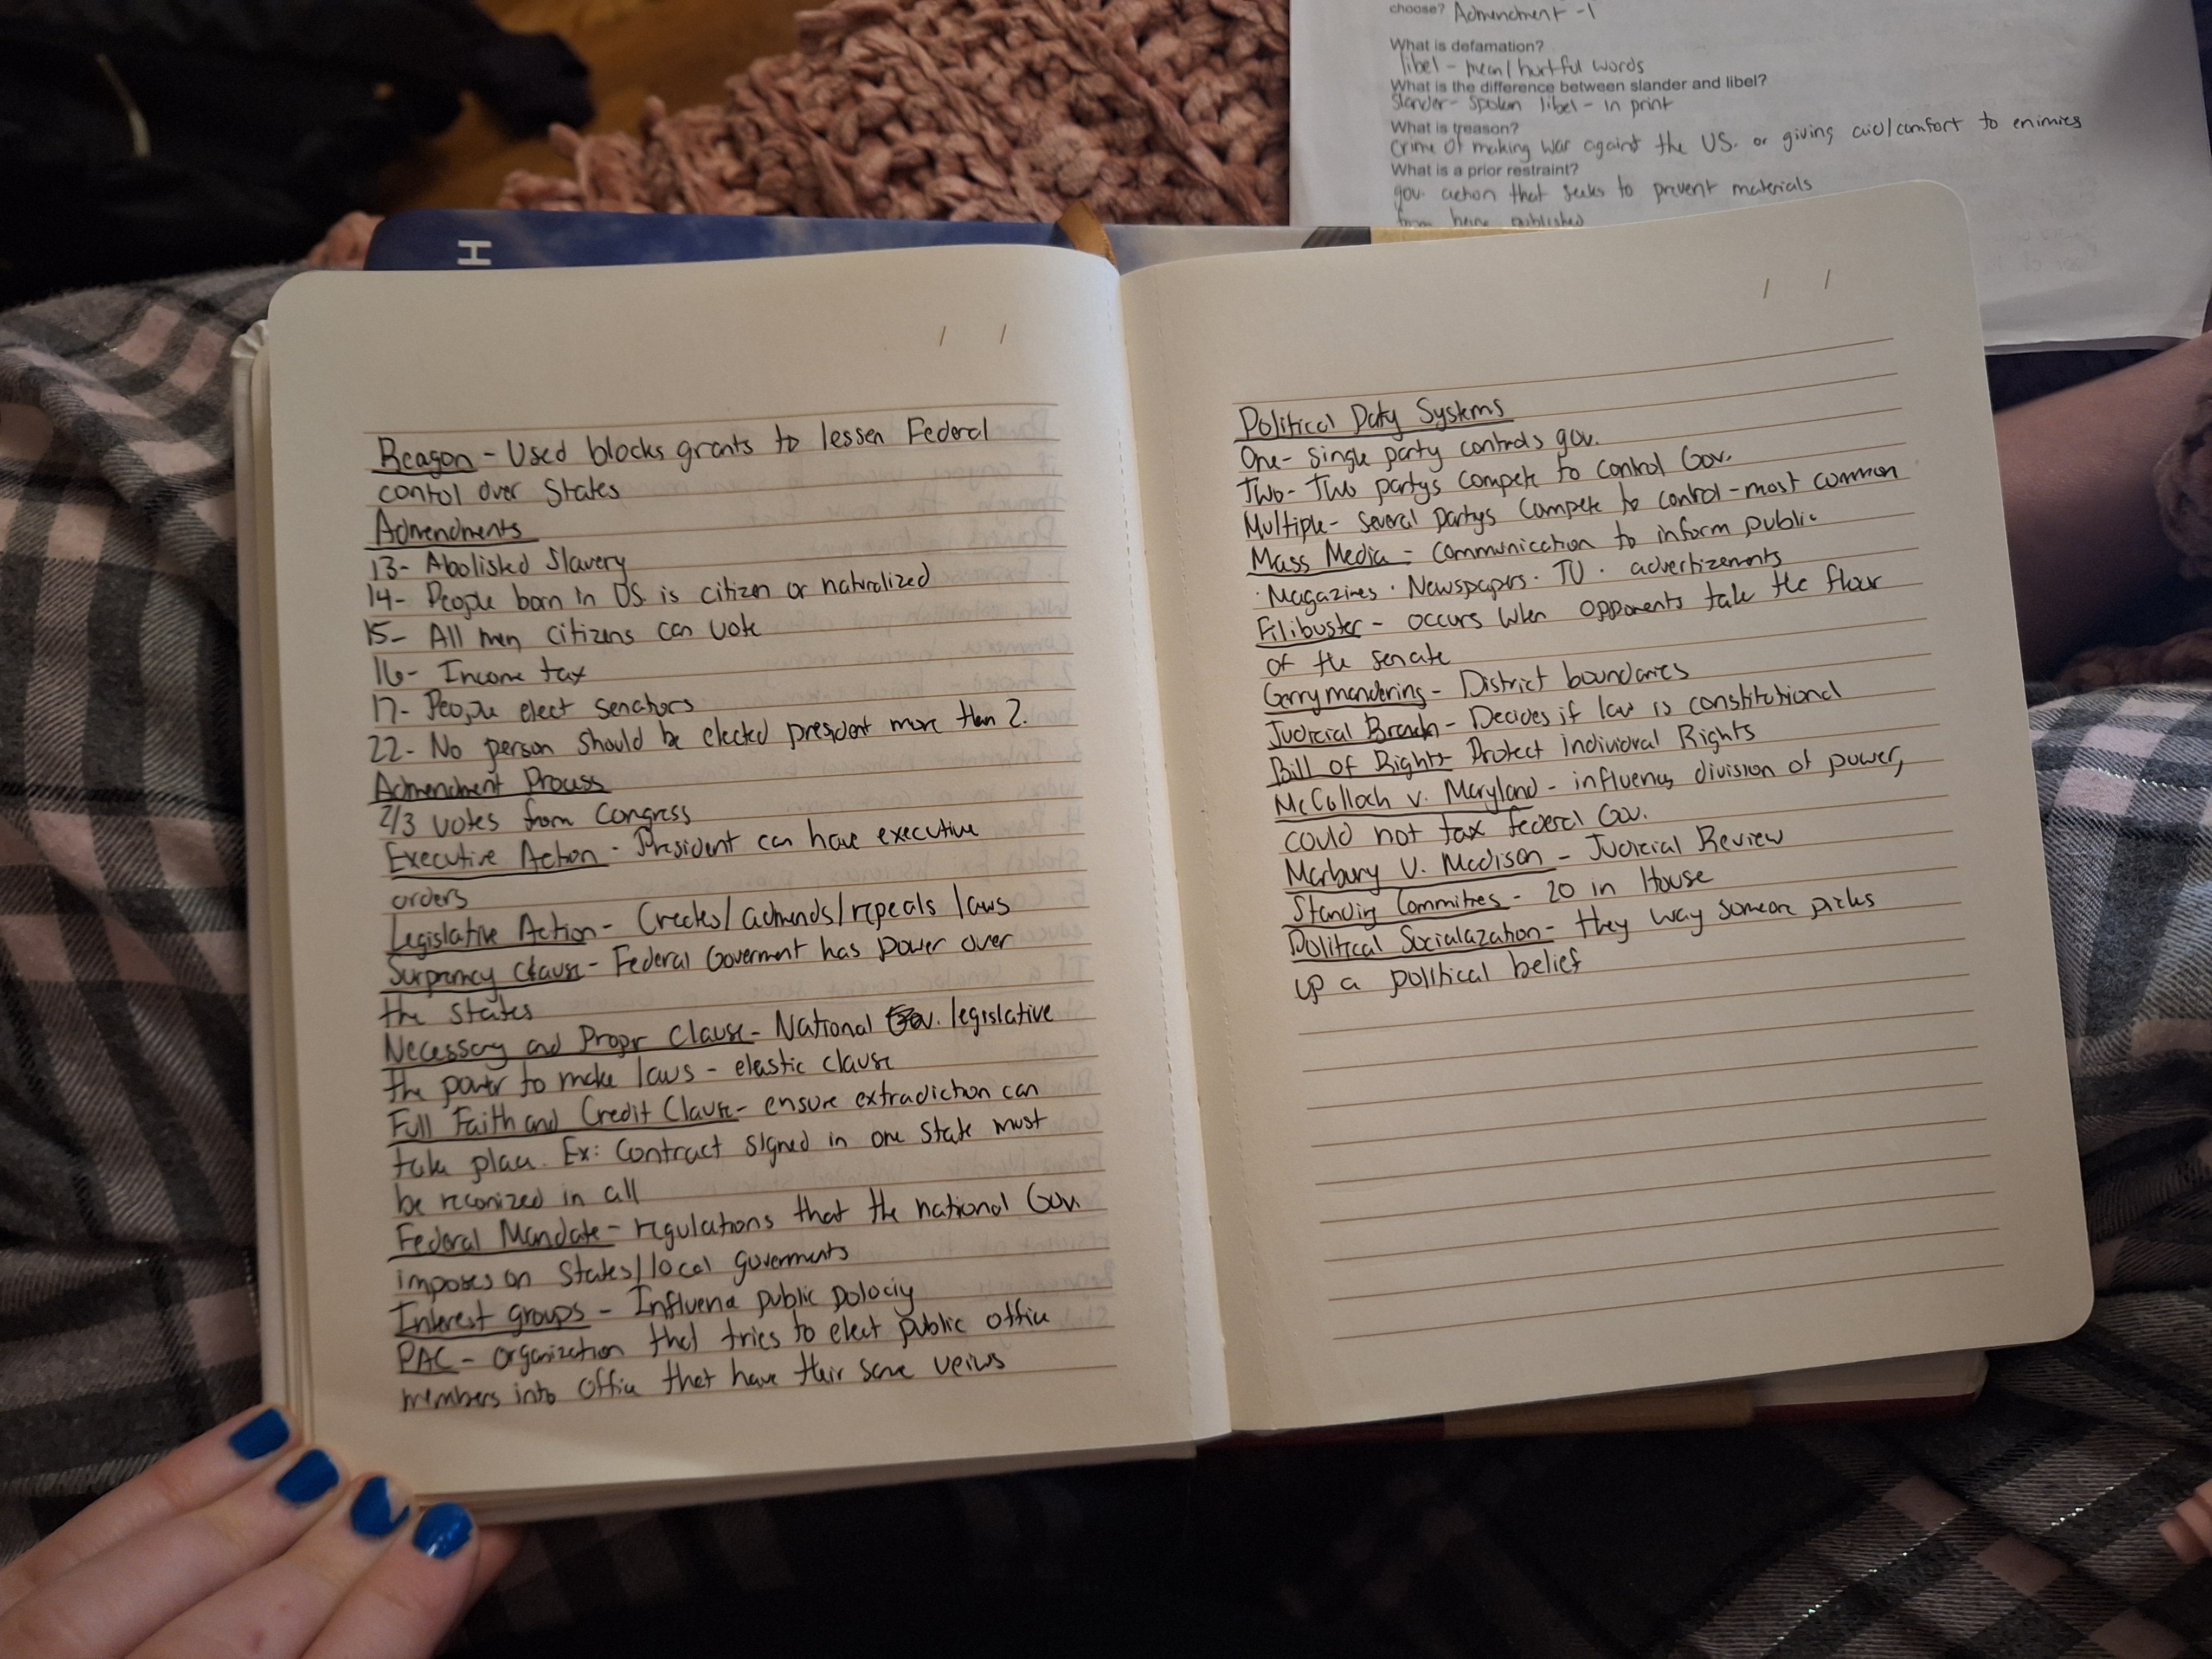 Reagon - Used blocks grants to lessen Federal
contol over States
Admendments
13- Abolished Slavery
14- People born in US. is citizen or naturalized
15- All men citizens can vote
16- Income tax
17- People elect senators
22- No person should be elected president more then 2.
Admendment Process
2/3 votes from Congress
Executive Action - President can have executive
orders
Legislative Action - Creates/admends/repeals laws
Supremacy clause - Federal Government has power over
the states
Necessary and Proper Clause - National Gov. legislative
the power to make laws - elastic clause
Full Faith and Credit Clause - ensure extradiction can
take place. Ex: Contract signed in one State must
be reconized in all
Federal Mandate - regulations that the national Gov.
imposes on States/local goverments
Interest groups - Influence public polociy
PAC - organization that tries to elect public office
members into office that have their same veiws
Political Party Systems
One - single party controls gov.
Two - Two partys compete to control Gov.
Multiple - several partys compete to control - most common
Mass Media - Communiction to inform public
· Magazines · Newspapers · TV · advertizements
Filibuster - occurs when opponents take the floor
of the senate
Gerrymandering - District boundaries
Judicial Branch - Decides if law is constitutional
Bill of Rights - Protect individual Rights
McCulloch v. Maryland - influences division of power,
could not tax federal Gov.
Marbury v. Madison - Judicial Review
Standing Commitees - 20 in House
Political Socialazation - they way someone picks
up a political belief
H
choose? Admendment - 1
What is defamation?
libel - mean/hurtful words
What is the difference between slander and libel?
slander - spoken libel - in print
What is treason?
crime of making war against the US. or giving aid/comfort to enimies
What is a prior restraint?
gov. action that seeks to prevent materials
from being published